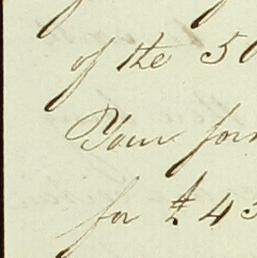 of the 50
Your for
for £ 43